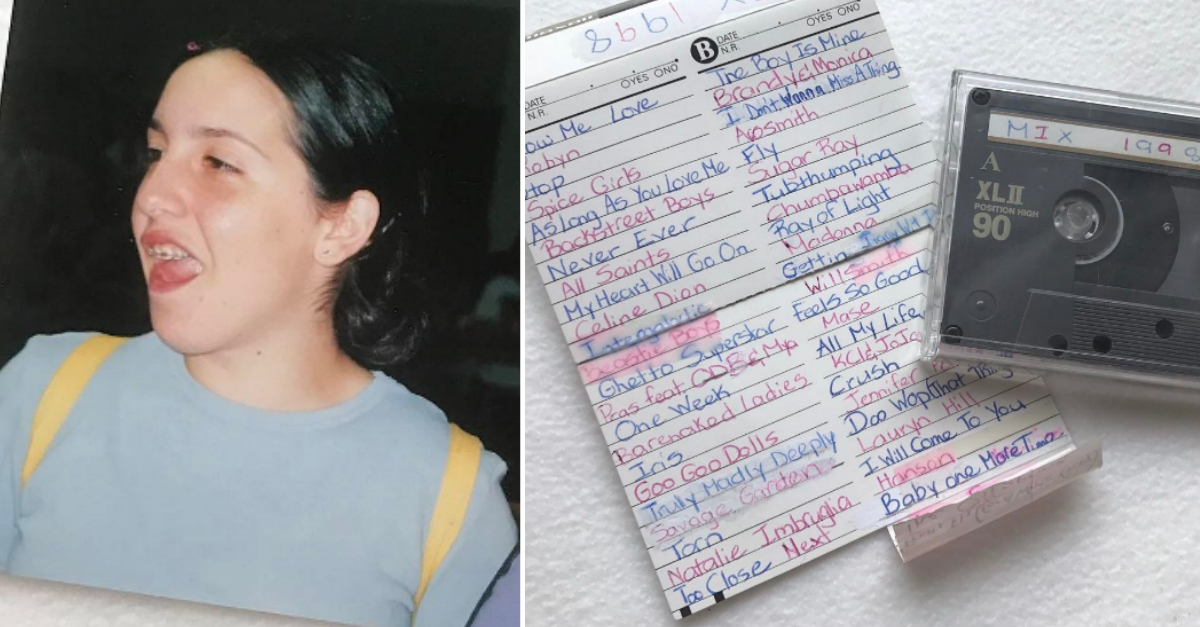 1998
DATE
N.R.
OYES ONO
ow Me Love
Robyn
Stop
Spice Girls
As Long As You Love Me
Backstreet Boys
Never Ever
All Saints
My Heart Will Go On
Celine Dion
Intergalactic
Beastie Boys
Ghetto Superstar
Pras feat. ODB & Mya
One Week
Barenaked Ladies
Iris
Goo Goo Dolls
Truly Madly Deeply
Savage Garden
Torn
Natalie Imbruglia
Too Close Next
B DATE
N.R.
OYES ONO
The Boy Is Mine
Brandy & Monica
I Don't Wanna Miss A Thing
Aerosmith
Fly
Sugar Ray
Tubthumping
Chumbawamba
Ray of Light
Madonna
Gettin
Will Smith
Feels So Good
Mase
All My Life
KCi & JoJo
Crush
Jennifer
Doo Wop (That Thing
Lauryn Hill
I Will Come To You
Hanson
Baby one More Time
MIX 199
A
XLII
POSITION HIGH
90